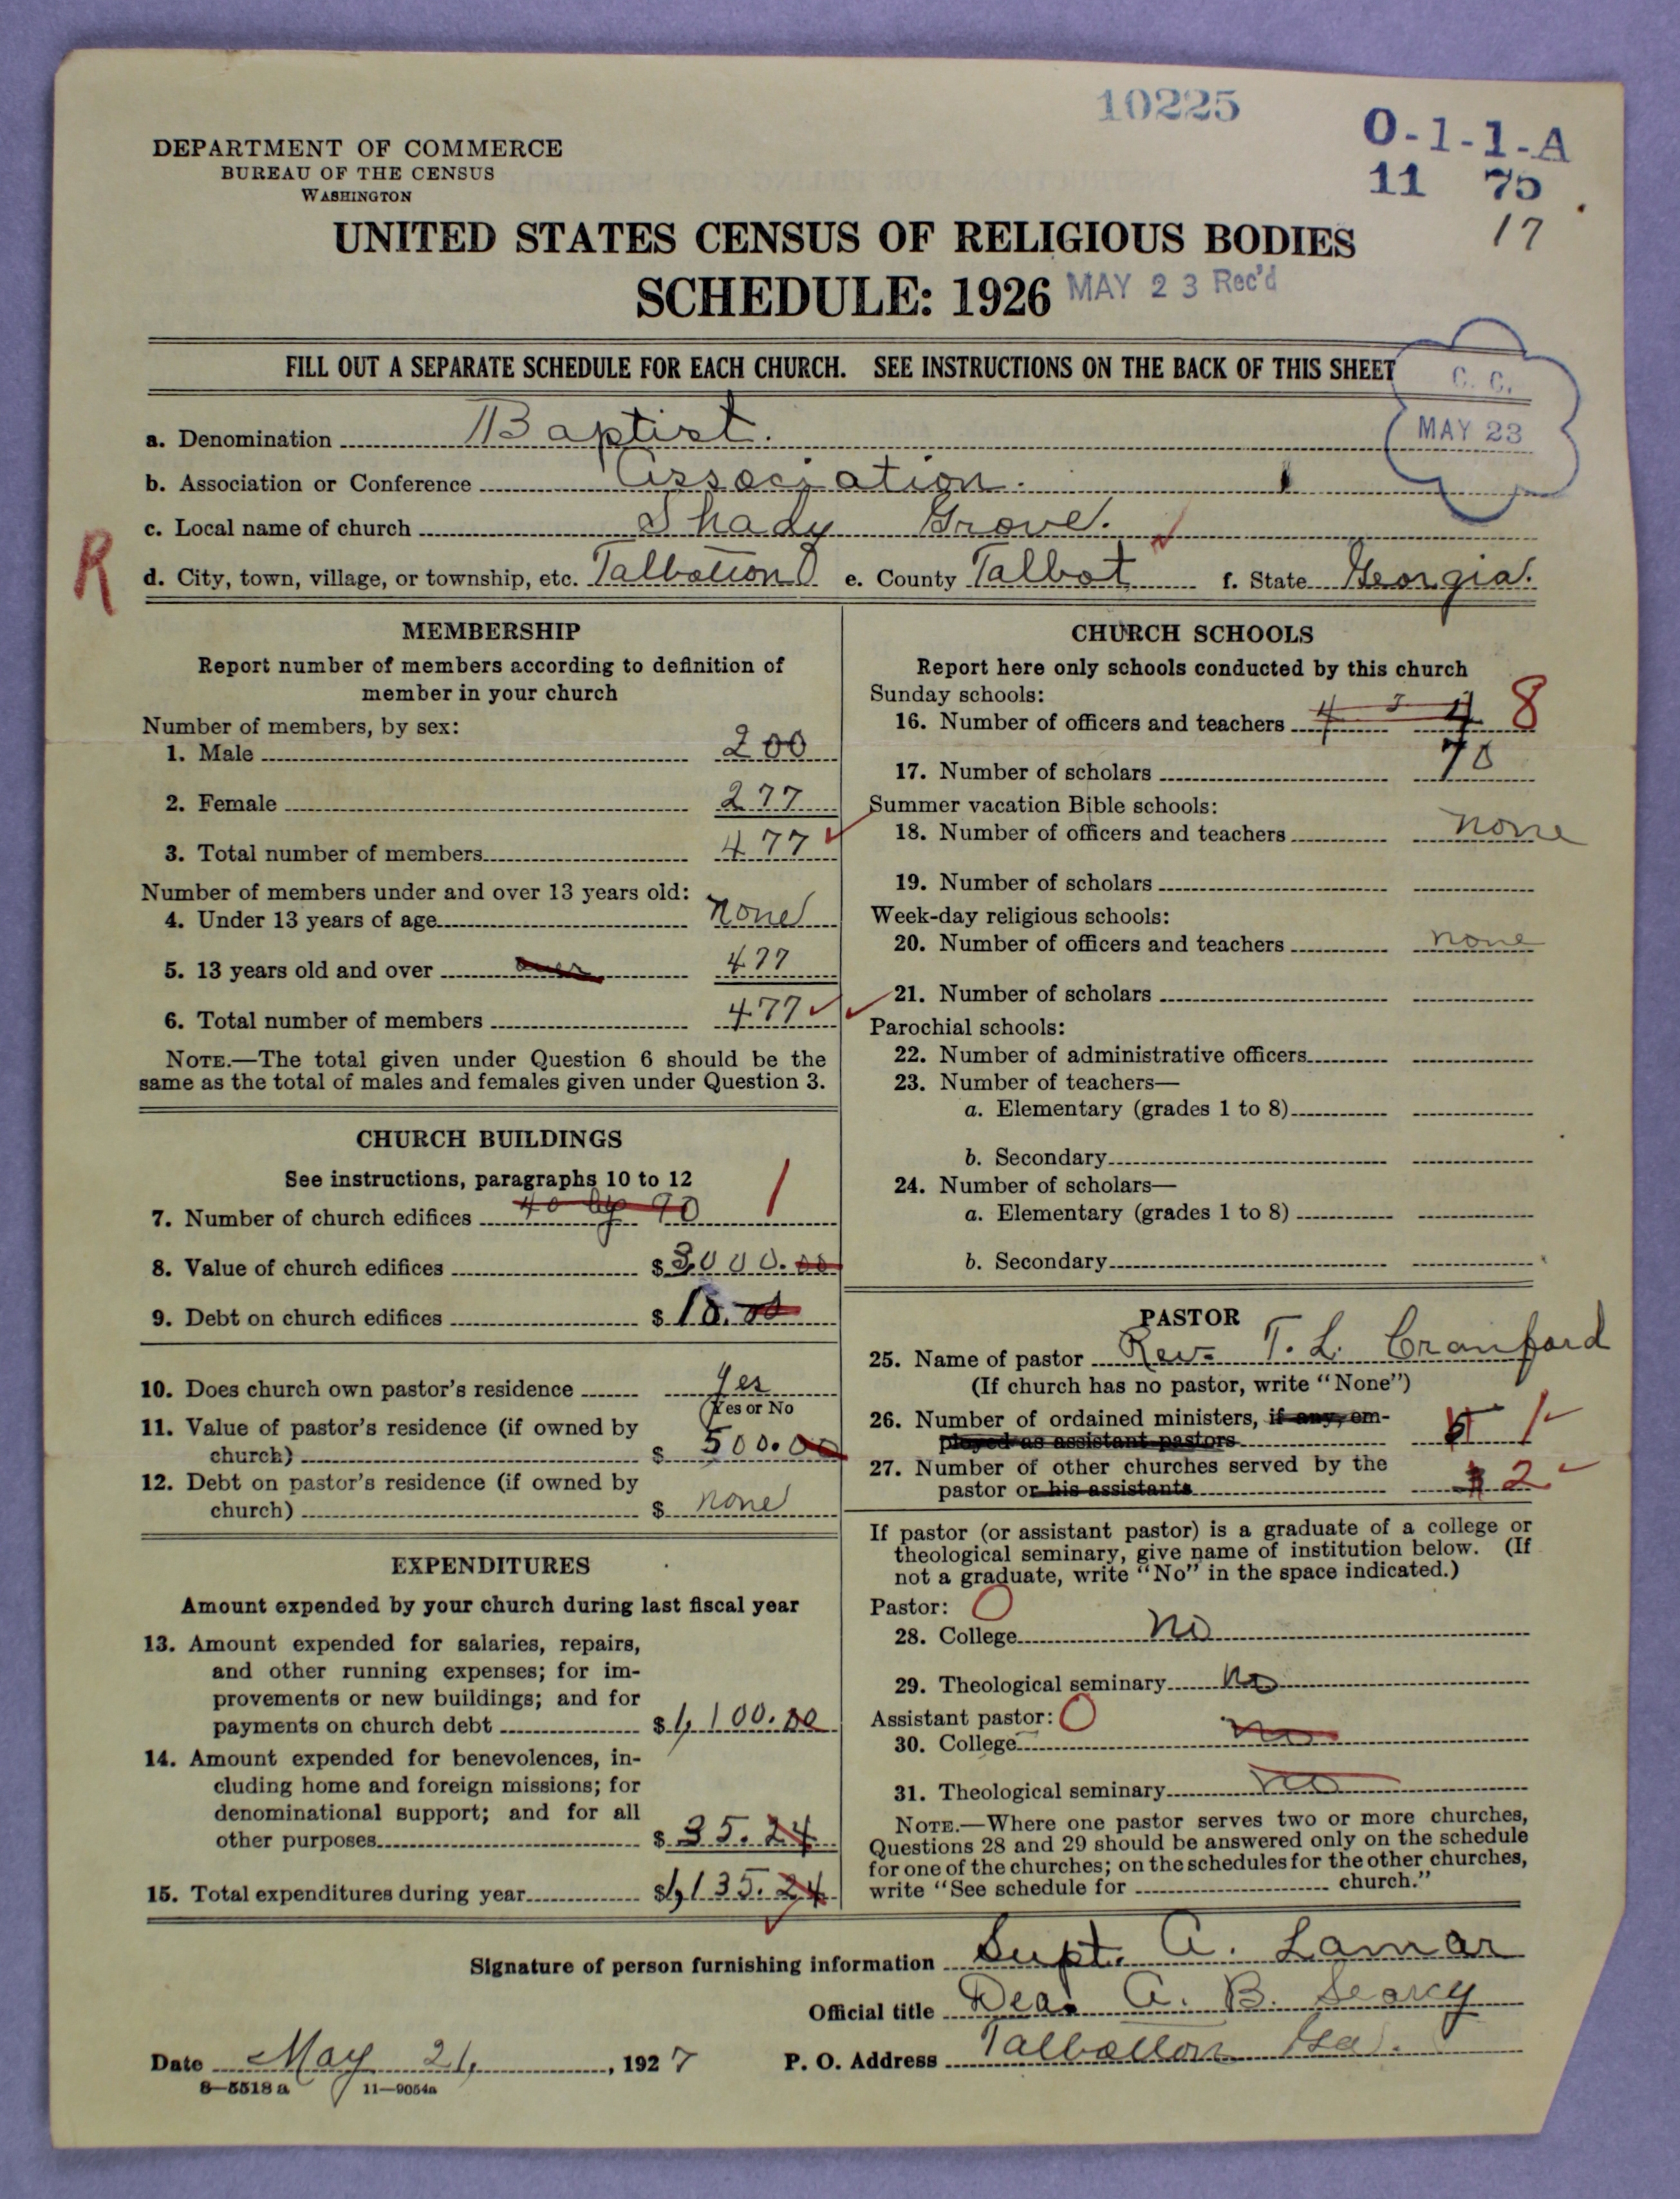 10225
O-1-1-A
11 75
17
DEPARTMENT OF COMMERCE
BUREAU OF THE CENSUS
WASHINGTON
UNITED STATES CENSUS OF RELIGIOUS BODIES
SCHEDULE: 1926 MAY 23 Rec'd
FILL OUT A SEPARATE SCHEDULE FOR EACH CHURCH. SEE INSTRUCTIONS ON THE BACK OF THIS SHEET
C. C.
MAY 23
a. Denomination Baptist.
b. Association or Conference Association.
c. Local name of church Shady Grove.
R
d. City, town, village, or township, etc. Talbotton e. County Talbot f. State Georgia.
MEMBERSHIP
Report number of members according to definition of
member in your church
Number of members, by sex:
1. Male 200
2. Female 277
3. Total number of members 477
Number of members under and over 13 years old:
4. Under 13 years of age none
5. 13 years old and over over 477
6. Total number of members 477
NOTE.—The total given under Question 6 should be the
same as the total of males and females given under Question 3.
CHURCH BUILDINGS
See instructions, paragraphs 10 to 12
7. Number of church edifices 40 by 90 1
8. Value of church edifices $3000.00
9. Debt on church edifices $10.00
10. Does church own pastor's residence yes
(Yes or No
11. Value of pastor's residence (if owned by
church) $ 500.00
12. Debt on pastor's residence (if owned by
church) $ none
EXPENDITURES
Amount expended by your church during last fiscal year
13. Amount expended for salaries, repairs,
and other running expenses; for im-
provements or new buildings; and for
payments on church debt $1,100.00
14. Amount expended for benevolences, in-
cluding home and foreign missions; for
denominational support; and for all
other purposes $ 35.24
15. Total expenditures during year $1,135.24
CHURCH SCHOOLS
Report here only schools conducted by this church
Sunday schools:
16. Number of officers and teachers 4 4 8
17. Number of scholars 70
Summer vacation Bible schools:
18. Number of officers and teachers none
19. Number of scholars
Week-day religious schools:
20. Number of officers and teachers none
21. Number of scholars
Parochial schools:
22. Number of administrative officers
23. Number of teachers—
a. Elementary (grades 1 to 8)
b. Secondary
24. Number of scholars—
a. Elementary (grades 1 to 8)
b. Secondary
PASTOR
25. Name of pastor Rev. T. L. Cranford
(If church has no pastor, write "None")
26. Number of ordained ministers, if any, em-
ployed as assistant pastors 5 1
27. Number of other churches served by the
pastor or his assistants 2
If pastor (or assistant pastor) is a graduate of a college or
theological seminary, give name of institution below. (If
not a graduate, write "No" in the space indicated.)
Pastor: 0
28. College no
29. Theological seminary no
Assistant pastor: 0
30. College no
31. Theological seminary no
NOTE.—Where one pastor serves two or more churches,
Questions 28 and 29 should be answered only on the schedule
for one of the churches; on the schedules for the other churches,
write "See schedule for church."
Signature of person furnishing information Supt. A. Lamar
Official title Dea. A. B. Searcy
Date May 21, 1927 P. O. Address Talbotton Ga.
8—5518 a 11—9054a